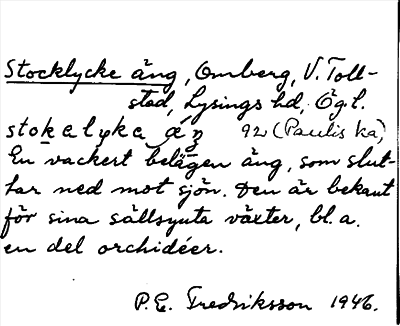 Stocklycke äng, Omberg, V. Toll-
stad, Lysings hd, Ögl.
stokalyka äŋ 92 (Paulis ka)
En vackert belägen äng, som slut-
tar ned mot sjön. Den är bekant
för sina sällsynta växter, bl. a.
en del orchidéer.
P. E. Fredriksson 1946.